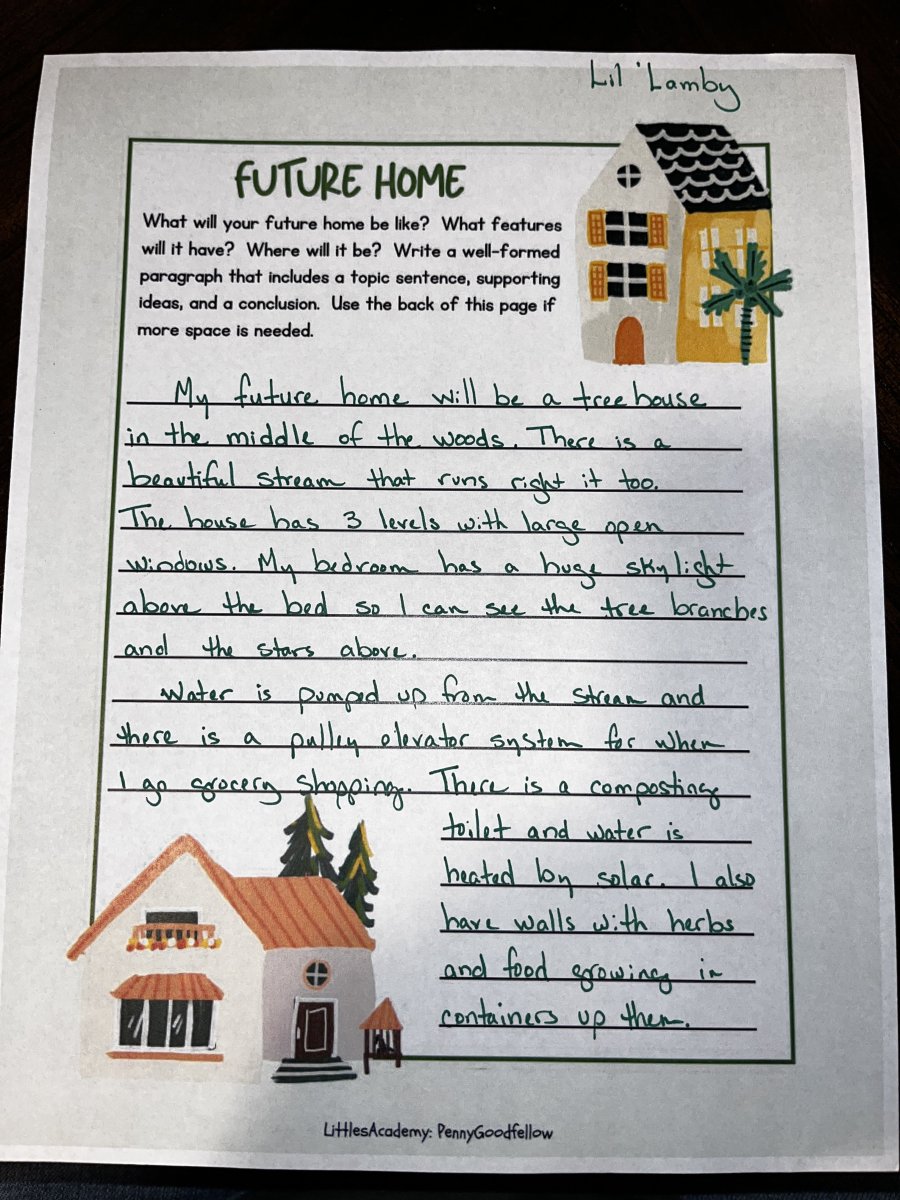 Lil 'Lamby
FUTURE HOME
What will your future home be like? What features
will it have? Where will it be? Write a well-formed
paragraph that includes a topic sentence, supporting
ideas, and a conclusion. Use the back of this page if
more space is needed.
My future home will be a treehouse
in the middle of the woods. There is a
beautiful stream that runs right it too.
The house has 3 levels with large open
windows. My bedroom has a huge skylight
above the bed so I can see the tree branches
and the stars above.
Water is pumped up from the stream and
there is a pulley elevator system for when
I go grocery shopping. There is a composting
toilet and water is
heated by solar. I also
have walls with herbs
and food growing in
containers up them.
LittlesAcademy: PennyGoodfellow